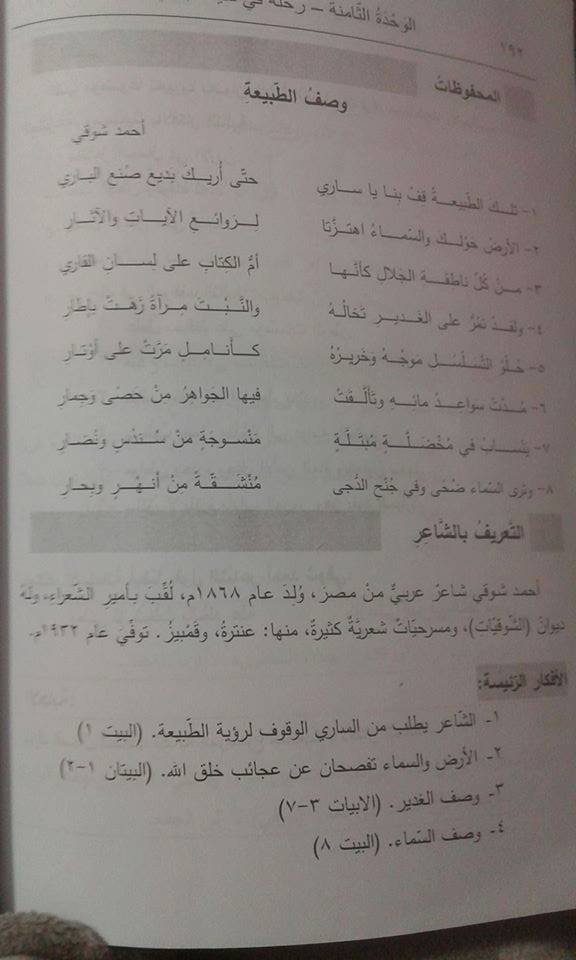 الوَحْدَةُ الثَّامنة – رحلة في
١٩٢
المحفوظات
وصفُ الطَّبيعةِ
أحمد شوقي
١- تلـك الطَّبيعـةُ قِفْ بِنا يا ساري حتّى أُريـكَ بديع صُنع الباري
٢- الأرضُ حَوْلـكَ والسّمـاءُ اهتزّتا لِـروائـعِ الآيـاتِ والآثـارِ
٣- مـنْ كُلّ ناطقـةِ الجَلالِ كأنّهـا أمُّ الكِتابِ على لِسـانِ القاري
٤- ولقـدْ تمُرُّ على الغَديـرِ تَخالُـهُ والنَّبْـتَ مِـرآةً زَهَتْ بإطارِ
٥- حُلْـوُ التَّسَلْسُـلِ مَوْجُـهُ وَخَريـرُهُ كـأنـامِـلٍ مَرّتْ على أوْتـارِ
٦- مُـدّتْ سواعِـدُ مائـهِ وتألّـقـتْ فيها الجَواهرُ مِنْ حَصًى وجِمارِ
٧- ينْسـابُ في مُخْضَلَّـةٍ مُبْتَلَّـةٍ مَنْسوجةٍ مِنْ سُنْدُسٍ ونُضَـارِ
٨- وترى السّماءَ ضُحًى وفي جُنْحِ الدُّجى مُنْشَـقّـةً مِنْ أنهُـرٍ وبِحـارِ
التَّعريفُ بالشَّاعرِ
أحمد شوقي شاعرٌ عربيٌّ منْ مصرَ، وُلدَ عام ١٨٦٨م، لُقّبَ بأميرِ الشّعراء، ولهُ
ديوانُ (الشّوقيّات)، ومسرحيّاتٌ شعريّةٌ كثيرةٌ، منها: عنترةُ، وقَمْبيزُ. توفّيَ عام ١٩٣٢م.
الأفكار الرّئيسة:
١- الشّاعر يطلب من الساري الوقوف لرؤية الطّبيعة. (البيت ١)
٢- الأرض والسماء تفصحان عن عجائب خلق الله. (البيتان ١-٢)
٣- وصف الغدير. (الابيات ٣-٧)
٤- وصف السّماء. (البيت ٨)